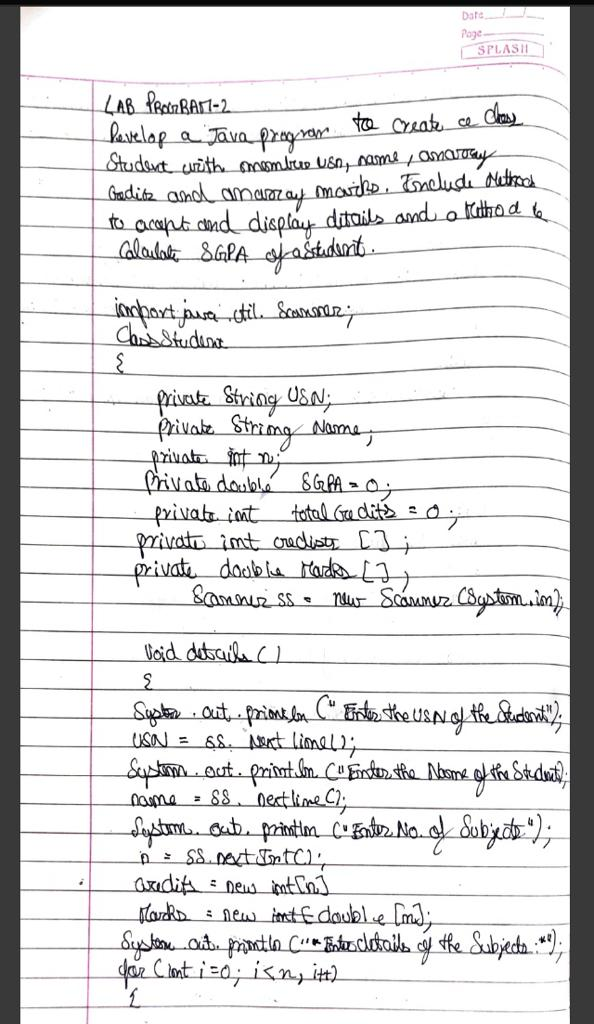 Date
Page
SPLASH
LAB PROGRAM-2
Develop a Java program to create a class
Student with members usn, name, an array
credits and an array marks. Include Methods
to accept and display details and a Method to
Calculate SGPA of a Student.
import java.util.Scanner;
Class Student
{
private String USN;
private String Name;
private int n;
Private double SGPA = 0;
private int total Credits = 0;
private int credists [];
private double Marks [];
Scanner ss = new Scanner (System.in);
Void details ()
{
System.out.println ("Enter the USN of the Student");
USN = ss. Next line();
System.out.println ("Enter the Name of the Student);
name = SS. nextline();
System.out.println ("Enter No. of Subjects");
n = SS.next Int();
credits = new int[n]
Marks = new int [double [n];
System out. println ("* Enter details of the Subjects:*");
for (int i=0; i<n, i++)
{